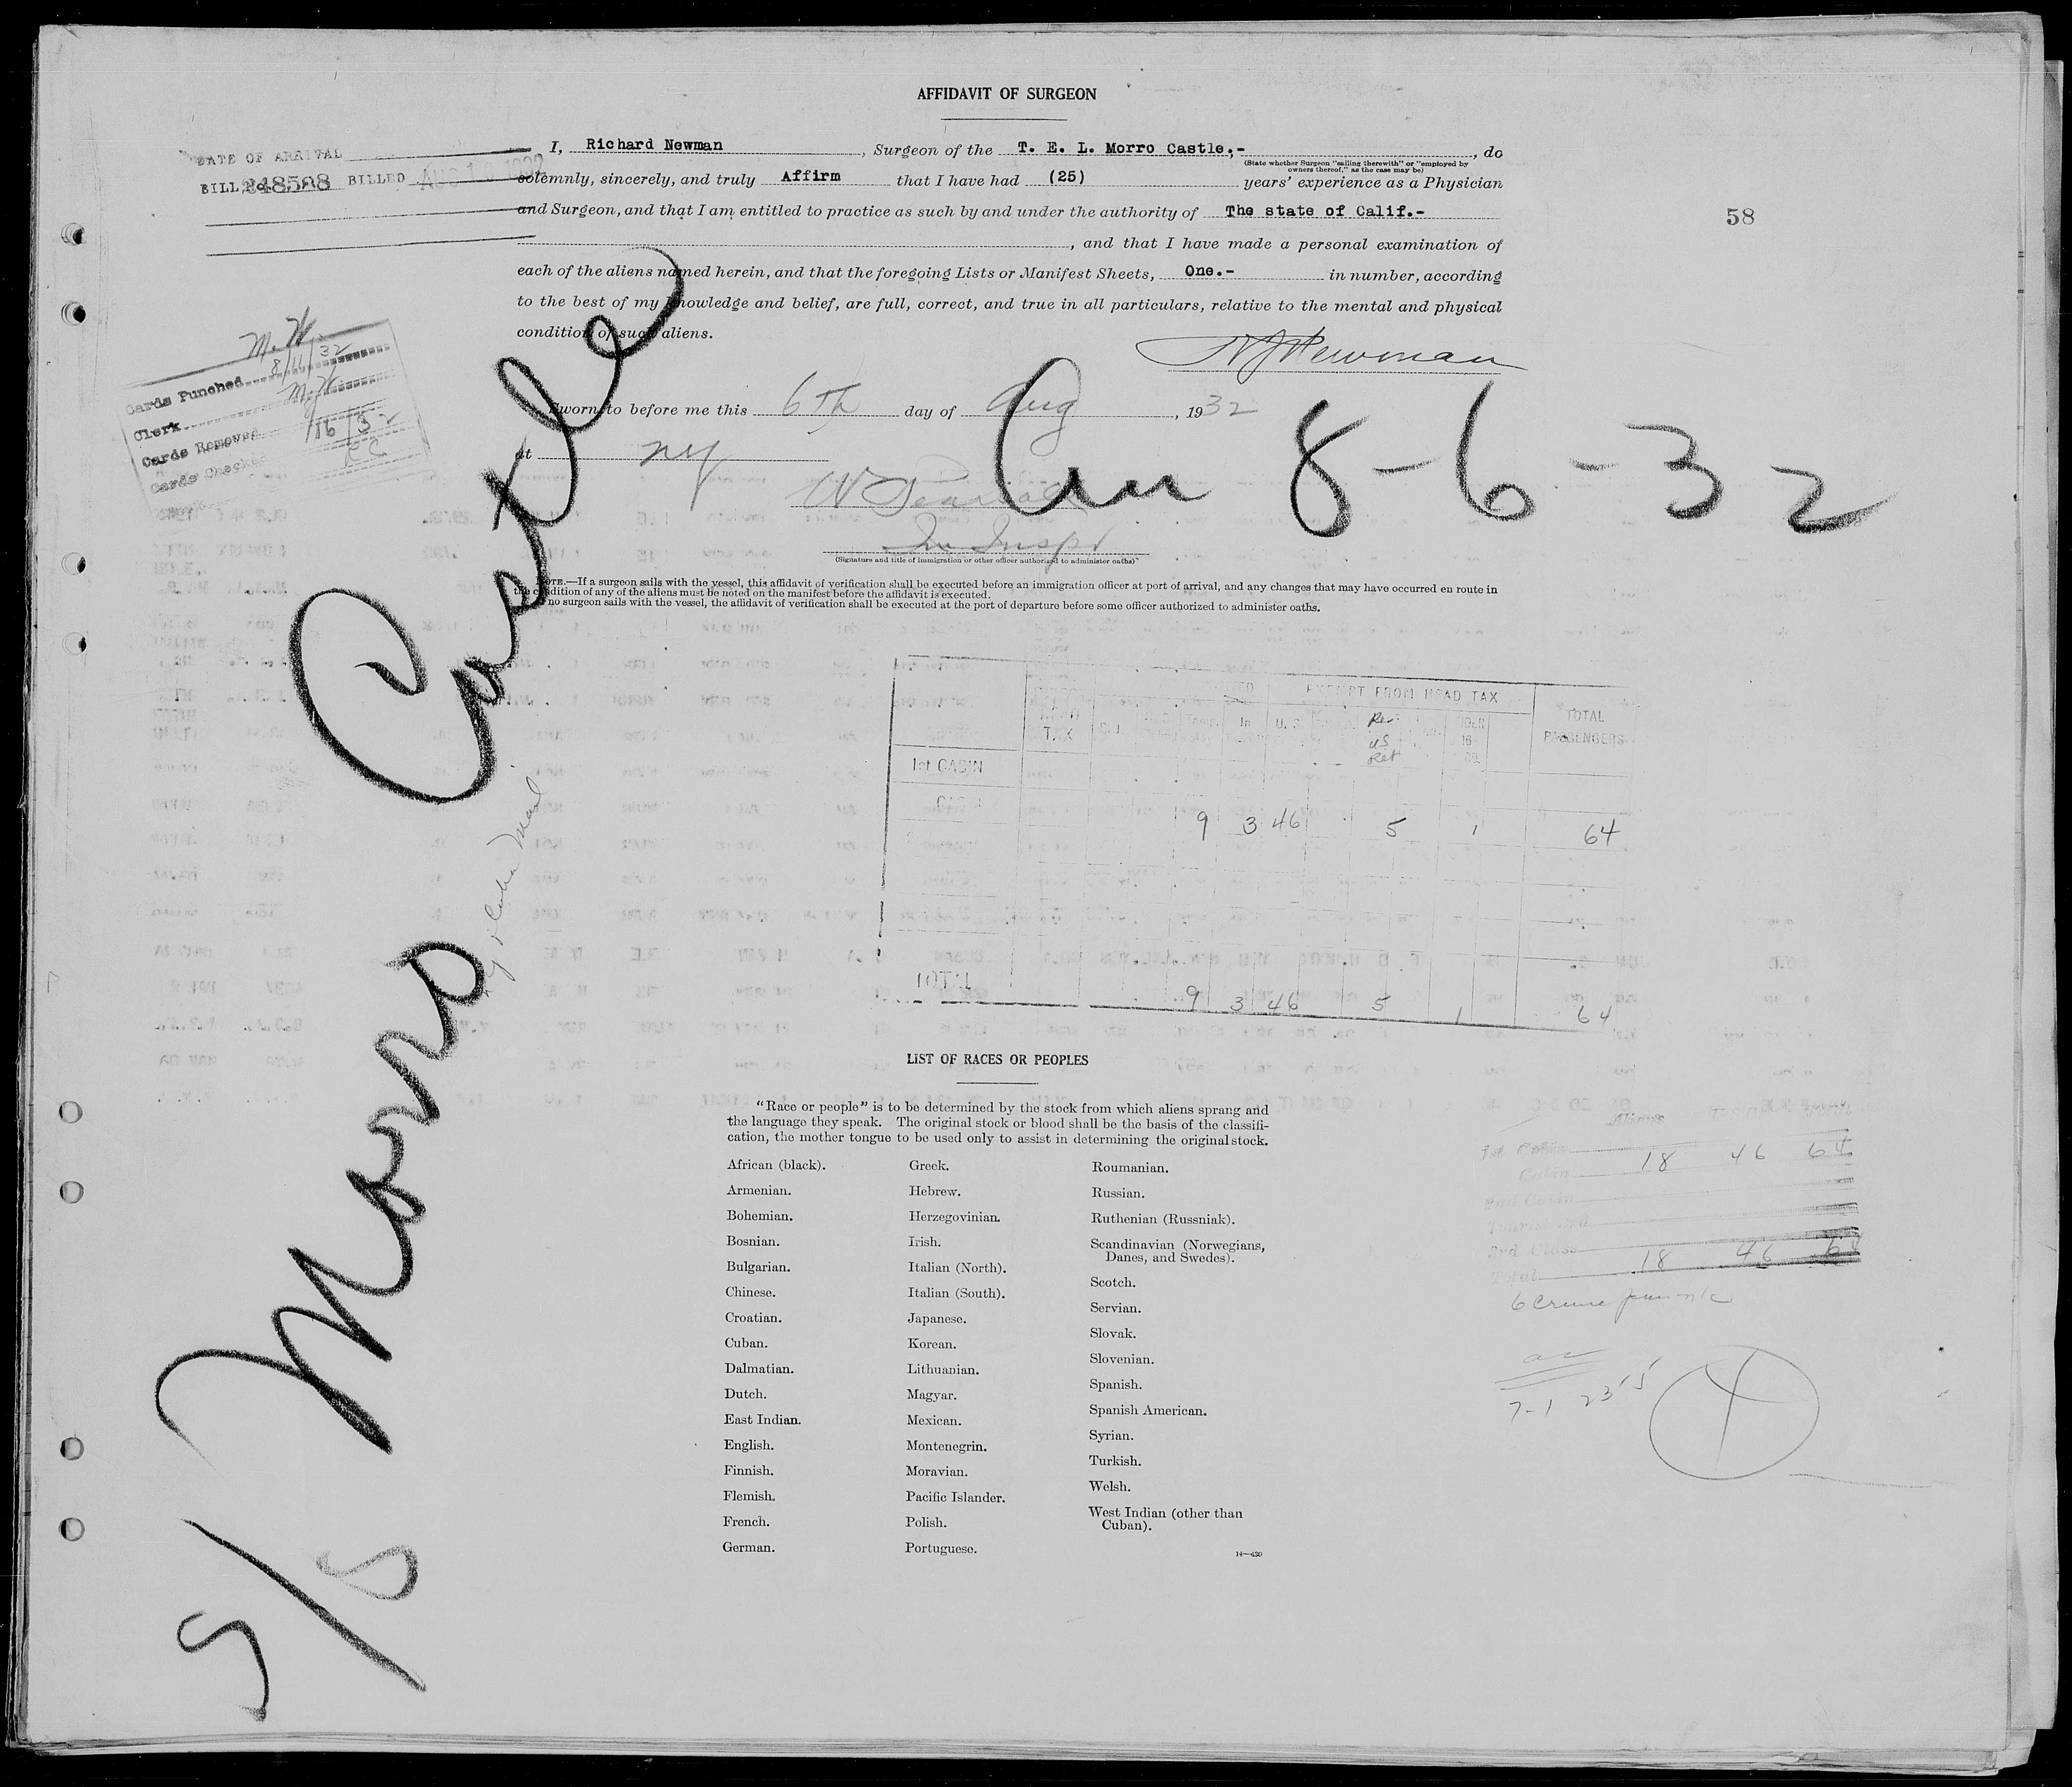 AFFIDAVIT OF SURGEON
DATE OF ARRIVAL
BILL No. 248508 BILLED AUG 1932
58
I, Richard Newman, Surgeon of the T. E. L. Morro Castle,- , do
(State whether Surgeon "sailing therewith" or "employed by owners thereof," as the case may be)
solemnly, sincerely, and truly Affirm that I have had (25) years' experience as a Physician
and Surgeon, and that I am entitled to practice as such by and under the authority of The state of Calif.-
, and that I have made a personal examination of
each of the aliens named herein, and that the foregoing Lists or Manifest Sheets, One.- in number, according
to the best of my knowledge and belief, are full, correct, and true in all particulars, relative to the mental and physical
condition of such aliens.
Newman
Sworn to before me this 6th day of Aug, 1932
at NY
Im Inspr
(Signature and title of immigration or other officer authorized to administer oaths)
Arr 8-6-32
M. W.
Cards Punched 8/11/32
Clerk M. W.
Cards Removed /16/32
Cards Checked
S/S Morro Castle
NOTE.—If a surgeon sails with the vessel, this affidavit of verification shall be executed before an immigration officer at port of arrival, and any changes that may have occurred en route in
the condition of any of the aliens must be noted on the manifest before the affidavit is executed.
no surgeon sails with the vessel, the affidavit of verification shall be executed at the port of departure before some officer authorized to administer oaths.
EXEMPT FROM HEAD TAX
TAX In U. S. US Ret 16 TOTAL PASSENGERS
1st CABIN
9 3 46 5 1 64
TOTAL 9 3 46 5 1 64
LIST OF RACES OR PEOPLES
"Race or people" is to be determined by the stock from which aliens sprang and
the language they speak. The original stock or blood shall be the basis of the classifi-
cation, the mother tongue to be used only to assist in determining the original stock.
African (black).
Armenian.
Bohemian.
Bosnian.
Bulgarian.
Chinese.
Croatian.
Cuban.
Dalmatian.
Dutch.
East Indian.
English.
Finnish.
Flemish.
French.
German.
Greek.
Hebrew.
Herzegovinian.
Irish.
Italian (North).
Italian (South).
Japanese.
Korean.
Lithuanian.
Magyar.
Mexican.
Montenegrin.
Moravian.
Pacific Islander.
Polish.
Portuguese.
Roumanian.
Russian.
Ruthenian (Russniak).
Scandinavian (Norwegians,
Danes, and Swedes).
Scotch.
Servian.
Slovak.
Slovenian.
Spanish.
Spanish American.
Syrian.
Turkish.
Welsh.
West Indian (other than
Cuban).
14—430
Aliens
1st Cabin 18 46 64
Cabin
2nd Cabin
Tourist 3rd
3rd Class
Total 18 46 64
7-1 2355